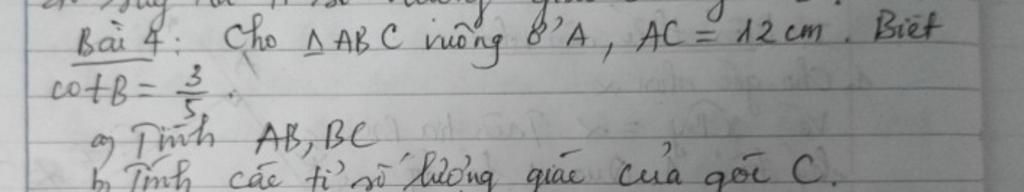 Bài 4: Cho △ABC vuông ở A, AC = 12cm. Biết
cotB = 3/5.
a) Tính AB, BC
b) Tính các tỉ số lượng giác của góc C.